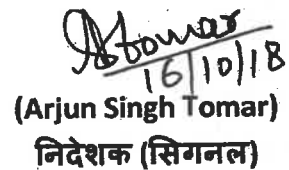 AStomar
16/10/18
(Arjun Singh Tomar)
निदेशक (सिगनल)